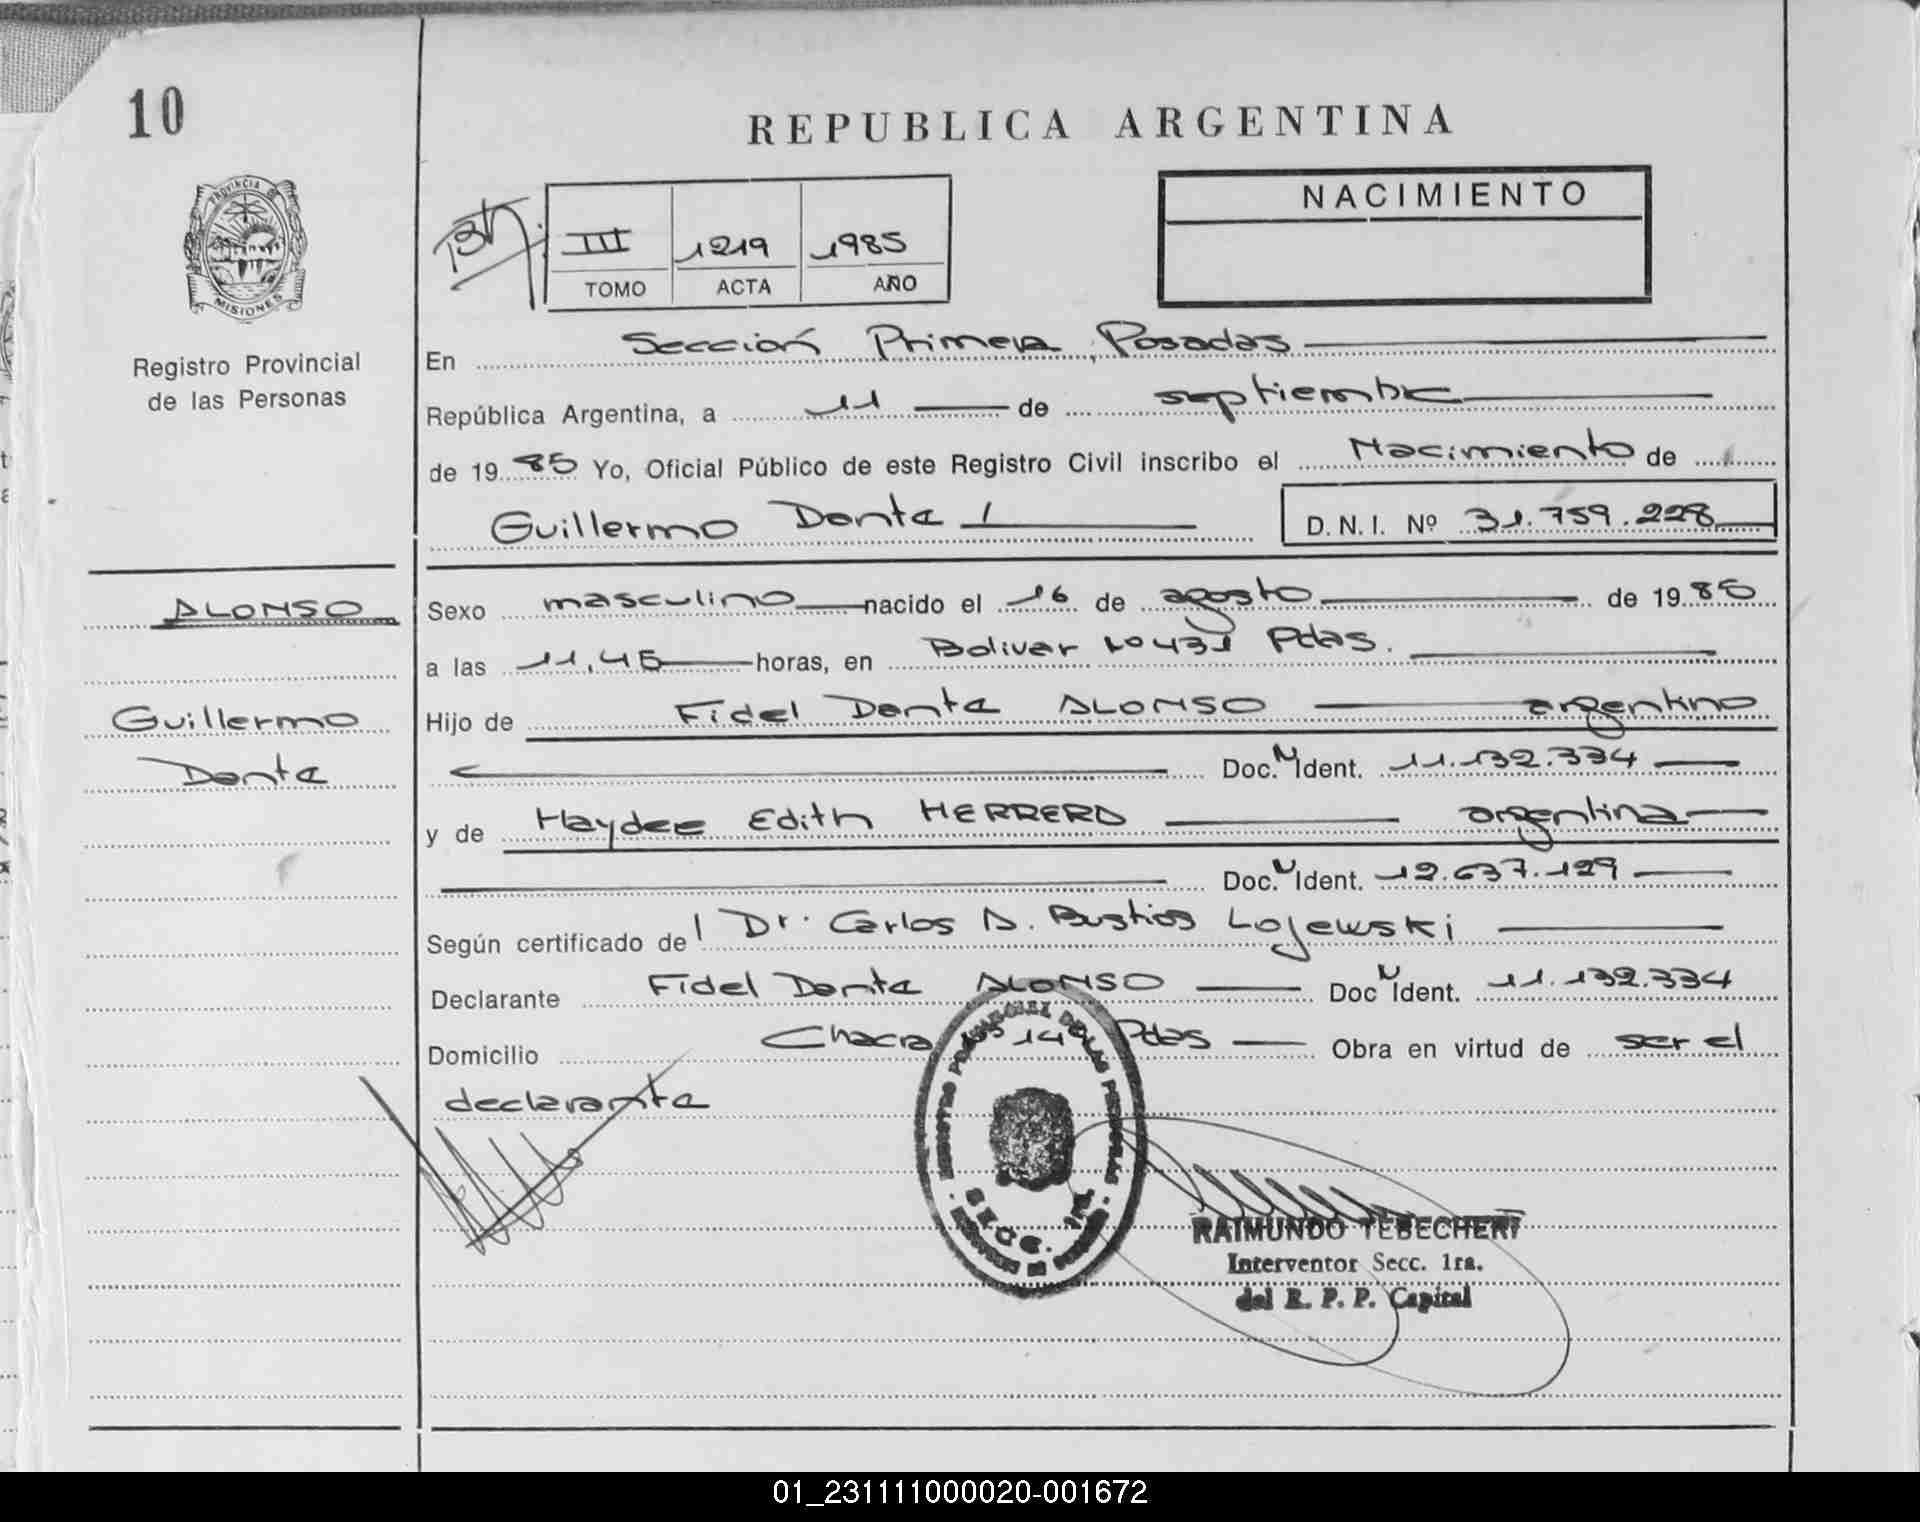 10
REPUBLICA ARGENTINA
PROVINCIA DE
MISIONES
Registro Provincial
de las Personas
III 1219 1985
TOMO ACTA AÑO
NACIMIENTO
En Sección Primera, Posadas
República Argentina, a 11 de septiembre
de 1985 Yo, Oficial Público de este Registro Civil inscribo el Nacimiento de
Guillermo Dante D.N.I. Nº 31.759.228
ALONSO
Guillermo
Dante
Sexo masculino nacido el 16 de agosto de 1985
a las 11,45 horas, en Bolivar Nº 431 Pdas.
Hijo de Fidel Dante ALONSO argentino
Doc. N Ident. 11.132.334
y de Haydee Edith HERRERO argentina
Doc. N Ident. 12.637.129
Según certificado de Dr. Carlos A. Bustios Lojewski
Declarante Fidel Dante ALONSO Doc N Ident. 11.132.334
Domicilio Chacra 14 Pdas Obra en virtud de ser el
declarante
REGISTRO PROVINCIAL DE LAS PERSONAS
SECC. 1ra.
RAIMUNDO TEBECHERI
Interventor Secc. 1ra.
del R. P. P. Capital
01_231111000020-001672